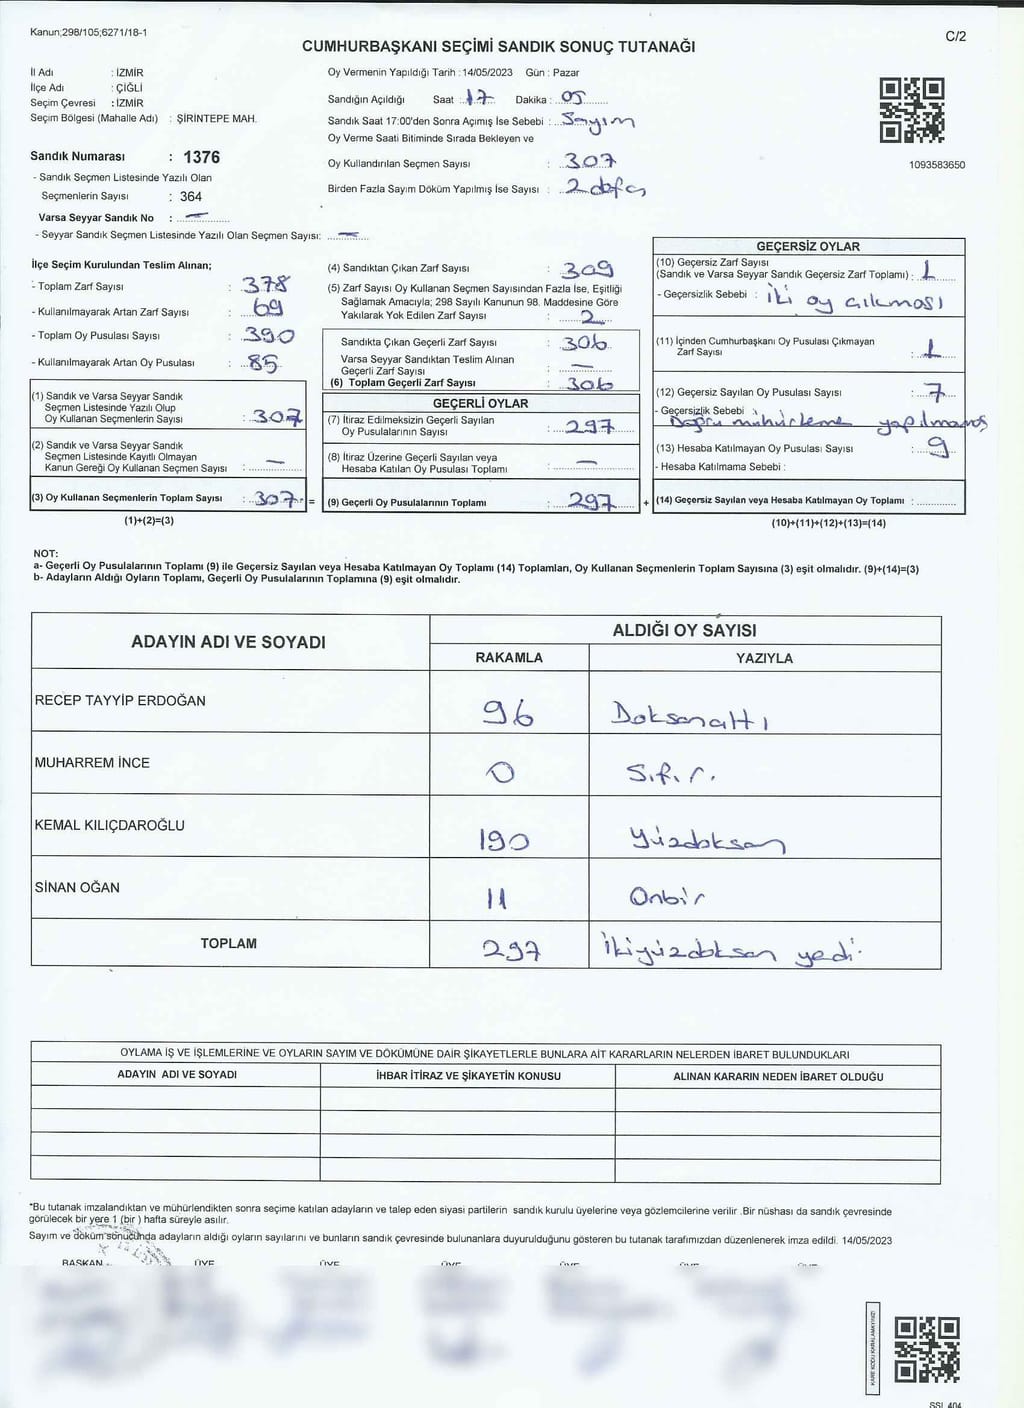 Kanun;298/105;6271/18-1
C/2
CUMHURBAŞKANI SEÇİMİ SANDIK SONUÇ TUTANAĞI
İl Adı : İZMİR
İlçe Adı : ÇİĞLİ
Seçim Çevresi : İZMİR
Seçim Bölgesi (Mahalle Adı) : ŞİRİNTEPE MAH.
Sandık Numarası : 1376
- Sandık Seçmen Listesinde Yazılı Olan
Seçmenlerin Sayısı : 364
Varsa Seyyar Sandık No : —
- Seyyar Sandık Seçmen Listesinde Yazılı Olan Seçmen Sayısı: —
Oy Vermenin Yapıldığı Tarih : 14/05/2023 Gün : Pazar
Sandığın Açıldığı Saat : 17 Dakika : 05
Sandık Saat 17:00'den Sonra Açımış İse Sebebi : Sayım
Oy Verme Saati Bitiminde Sırada Bekleyen ve
Oy Kullandırılan Seçmen Sayısı : 307
Birden Fazla Sayım Döküm Yapılmış İse Sayısı : 2 defa
1093583650
İlçe Seçim Kurulundan Teslim Alınan;
- Toplam Zarf Sayısı : 378
- Kullanılmayarak Artan Zarf Sayısı : 69
- Toplam Oy Pusulası Sayısı : 390
- Kullanılmayarak Artan Oy Pusulası : 85
(1) Sandık ve Varsa Seyyar Sandık
Seçmen Listesinde Yazılı Olup
Oy Kullanan Seçmenlerin Sayısı : 307
(2) Sandık ve Varsa Seyyar Sandık
Seçmen Listesinde Kayıtlı Olmayan
Kanun Gereği Oy Kullanan Seçmen Sayısı : —
(3) Oy Kullanan Seçmenlerin Toplam Sayısı : 307 =
(1)+(2)=(3)
(4) Sandıktan Çıkan Zarf Sayısı : 309
(5) Zarf Sayısı Oy Kullanan Seçmen Sayısından Fazla İse, Eşitliği
Sağlamak Amacıyla; 298 Sayılı Kanunun 98. Maddesine Göre
Yakılarak Yok Edilen Zarf Sayısı : 2
Sandıkta Çıkan Geçerli Zarf Sayısı : 306
Varsa Seyyar Sandıktan Teslim Alınan
Geçerli Zarf Sayısı : —
(6) Toplam Geçerli Zarf Sayısı : 306
GEÇERLİ OYLAR
(7) İtiraz Edilmeksizin Geçerli Sayılan
Oy Pusulalarının Sayısı : 297
(8) İtiraz Üzerine Geçerli Sayılan veya
Hesaba Katılan Oy Pusulası Toplamı : —
(9) Geçerli Oy Pusulalarının Toplamı : 297 +
GEÇERSİZ OYLAR
(10) Geçersiz Zarf Sayısı
(Sandık ve Varsa Seyyar Sandık Geçersiz Zarf Toplamı) : 1
- Geçersizlik Sebebi : İki oy çıkması
(11) İçinden Cumhurbaşkanı Oy Pusulası Çıkmayan
Zarf Sayısı : 1
(12) Geçersiz Sayılan Oy Pusulası Sayısı : 7
- Geçersizlik Sebebi : Doğru mühürleme yapılmamış
(13) Hesaba Katılmayan Oy Pusulası Sayısı : 9
- Hesaba Katılmama Sebebi :
(14) Geçersiz Sayılan veya Hesaba Katılmayan Oy Toplamı :
(10)+(11)+(12)+(13)=(14)
NOT:
a- Geçerli Oy Pusulalarının Toplamı (9) ile Geçersiz Sayılan veya Hesaba Katılmayan Oy Toplamı (14) Toplamları, Oy Kullanan Seçmenlerin Toplam Sayısına (3) eşit olmalıdır. (9)+(14)=(3)
b- Adayların Aldığı Oyların Toplamı, Geçerli Oy Pusulalarının Toplamına (9) eşit olmalıdır.
ADAYIN ADI VE SOYADI
ALDIĞI OY SAYISI
RAKAMLA YAZIYLA
RECEP TAYYİP ERDOĞAN 96 Doksanaltı
MUHARREM İNCE 0 Sıfır.
KEMAL KILIÇDAROĞLU 190 Yüzdoksan
SİNAN OĞAN 11 Onbir
TOPLAM 297 İkiyüzdoksan yedi.
OYLAMA İŞ VE İŞLEMLERİNE VE OYLARIN SAYIM VE DÖKÜMÜNE DAİR ŞİKAYETLERLE BUNLARA AİT KARARLARIN NELERDEN İBARET BULUNDUKLARI
ADAYIN ADI VE SOYADI İHBAR İTİRAZ VE ŞİKAYETİN KONUSU ALINAN KARARIN NEDEN İBARET OLDUĞU
*Bu tutanak imzalandıktan ve mühürlendikten sonra seçime katılan adayların ve talep eden siyasi partilerin sandık kurulu üyelerine veya gözlemcilerine verilir .Bir nüshası da sandık çevresinde
görülecek bir yere 1 (bir ) hafta süreyle asılır.
Sayım ve döküm sonucunda adayların aldığı oyların sayılarını ve bunların sandık çevresinde bulunanlara duyurulduğunu gösteren bu tutanak tarafımızdan düzenlenerek imza edildi. 14/05/2023
BAŞKAN ÜYE ÜYE ÜYE ÜYE ÜYE ÜYE
KARE KODU KARALAMAYINIZ!
SSL 404